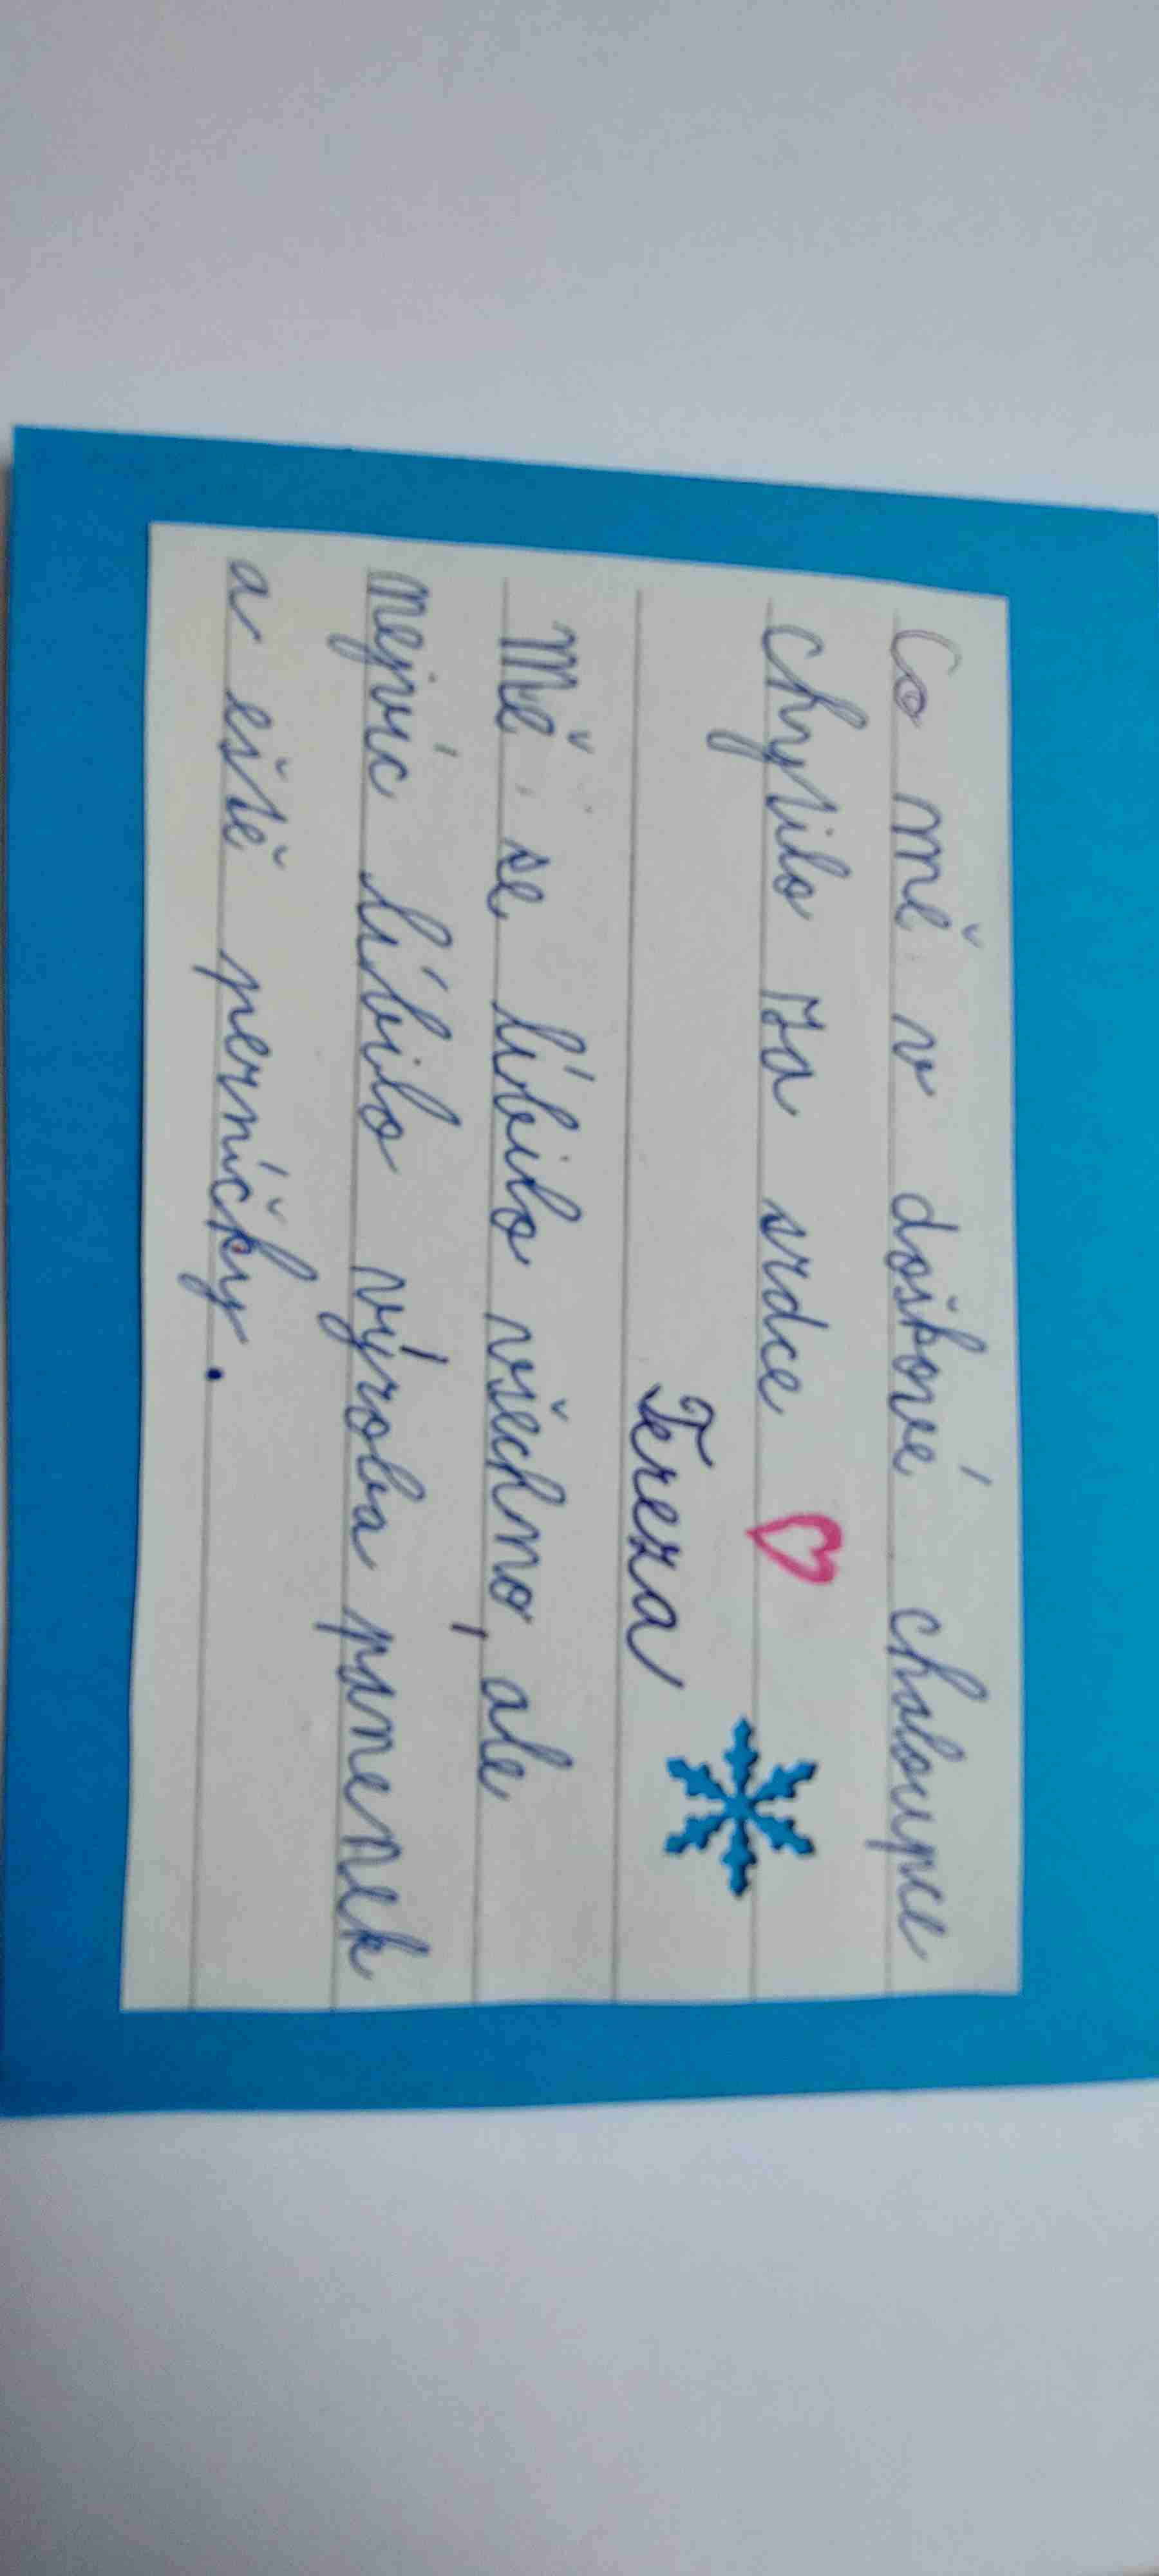 Co mě v doškové chaloupce
chytilo za srdce
Tereza
Mě se líbilo všechno, ale
nejvíc líbilo výroba panenek
a eště perníčky.